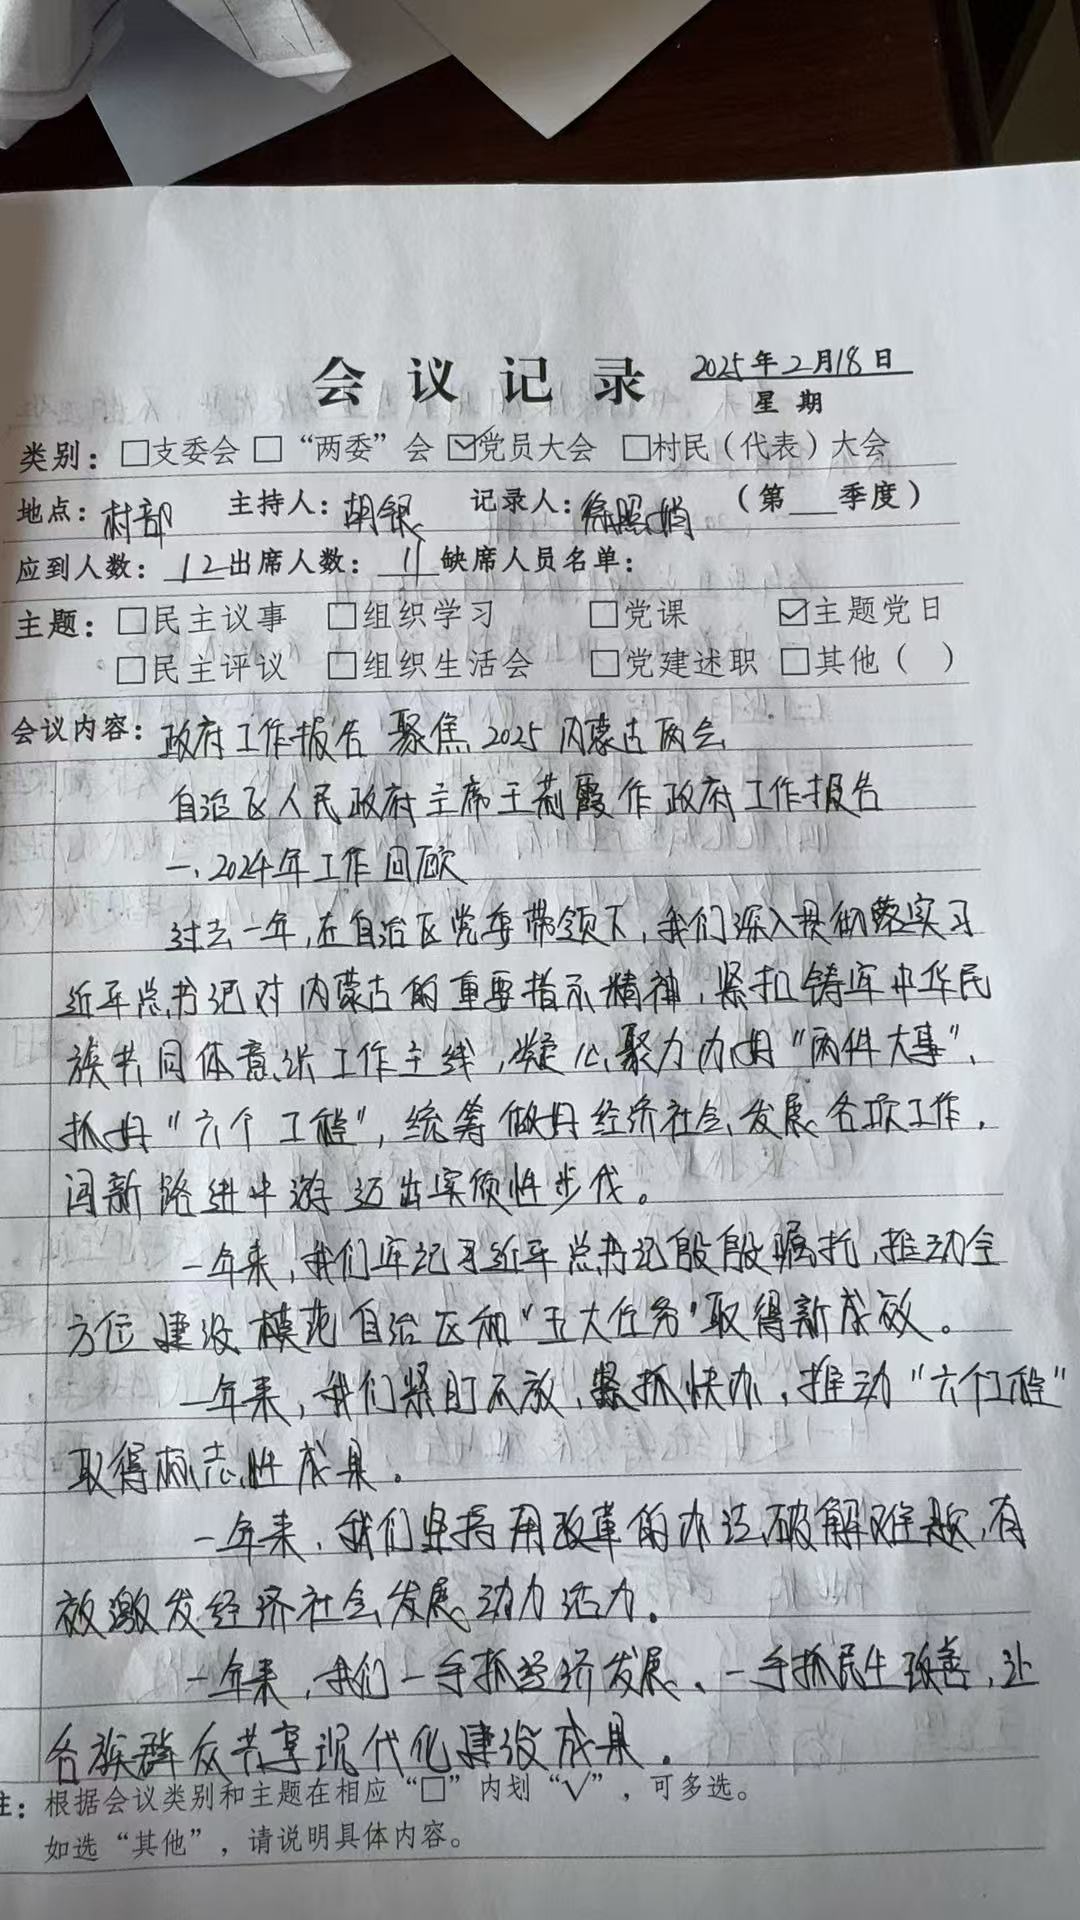 会议记录 2025年2月18日
星期
类别：□支委会 □“两委”会 ☑党员大会 □村民（代表）大会
地点：村部 主持人：胡银 记录人：徐照娟 （第___季度）
应到人数：12 出席人数：11 缺席人员名单：
主题：□民主议事 □组织学习 □党课 ☑主题党日
□民主评议 □组织生活会 □党建述职 □其他（ ）
会议内容：政府工作报告 聚焦2025内蒙古两会
自治区人民政府主席王莉霞作政府工作报告
一、2024年工作回顾
过去一年，在自治区党委带领下，我们深入贯彻落实习
近平总书记对内蒙古的重要指示精神，紧扣铸牢中华民
族共同体意识工作主线，凝心聚力办好“两件大事”、
抓好“六个工程”，统筹做好经济社会发展各项工作，
闯新路进中游迈出实质性步伐。
一年来，我们牢记习近平总书记殷殷嘱托，推动全
方位建设模范自治区和“五大任务”取得新成效。
一年来，我们紧盯不放、紧抓快办，推动“六个工程”
取得标志性成果。
一年来，我们坚持用改革的办法破解难题，有
效激发经济社会发展动力活力。
一年来，我们一手抓经济发展、一手抓民生改善，让
各族群众共享现代化建设成果。
注：根据会议类别和主题在相应“□”内划“√”，可多选。
如选“其他”，请说明具体内容。